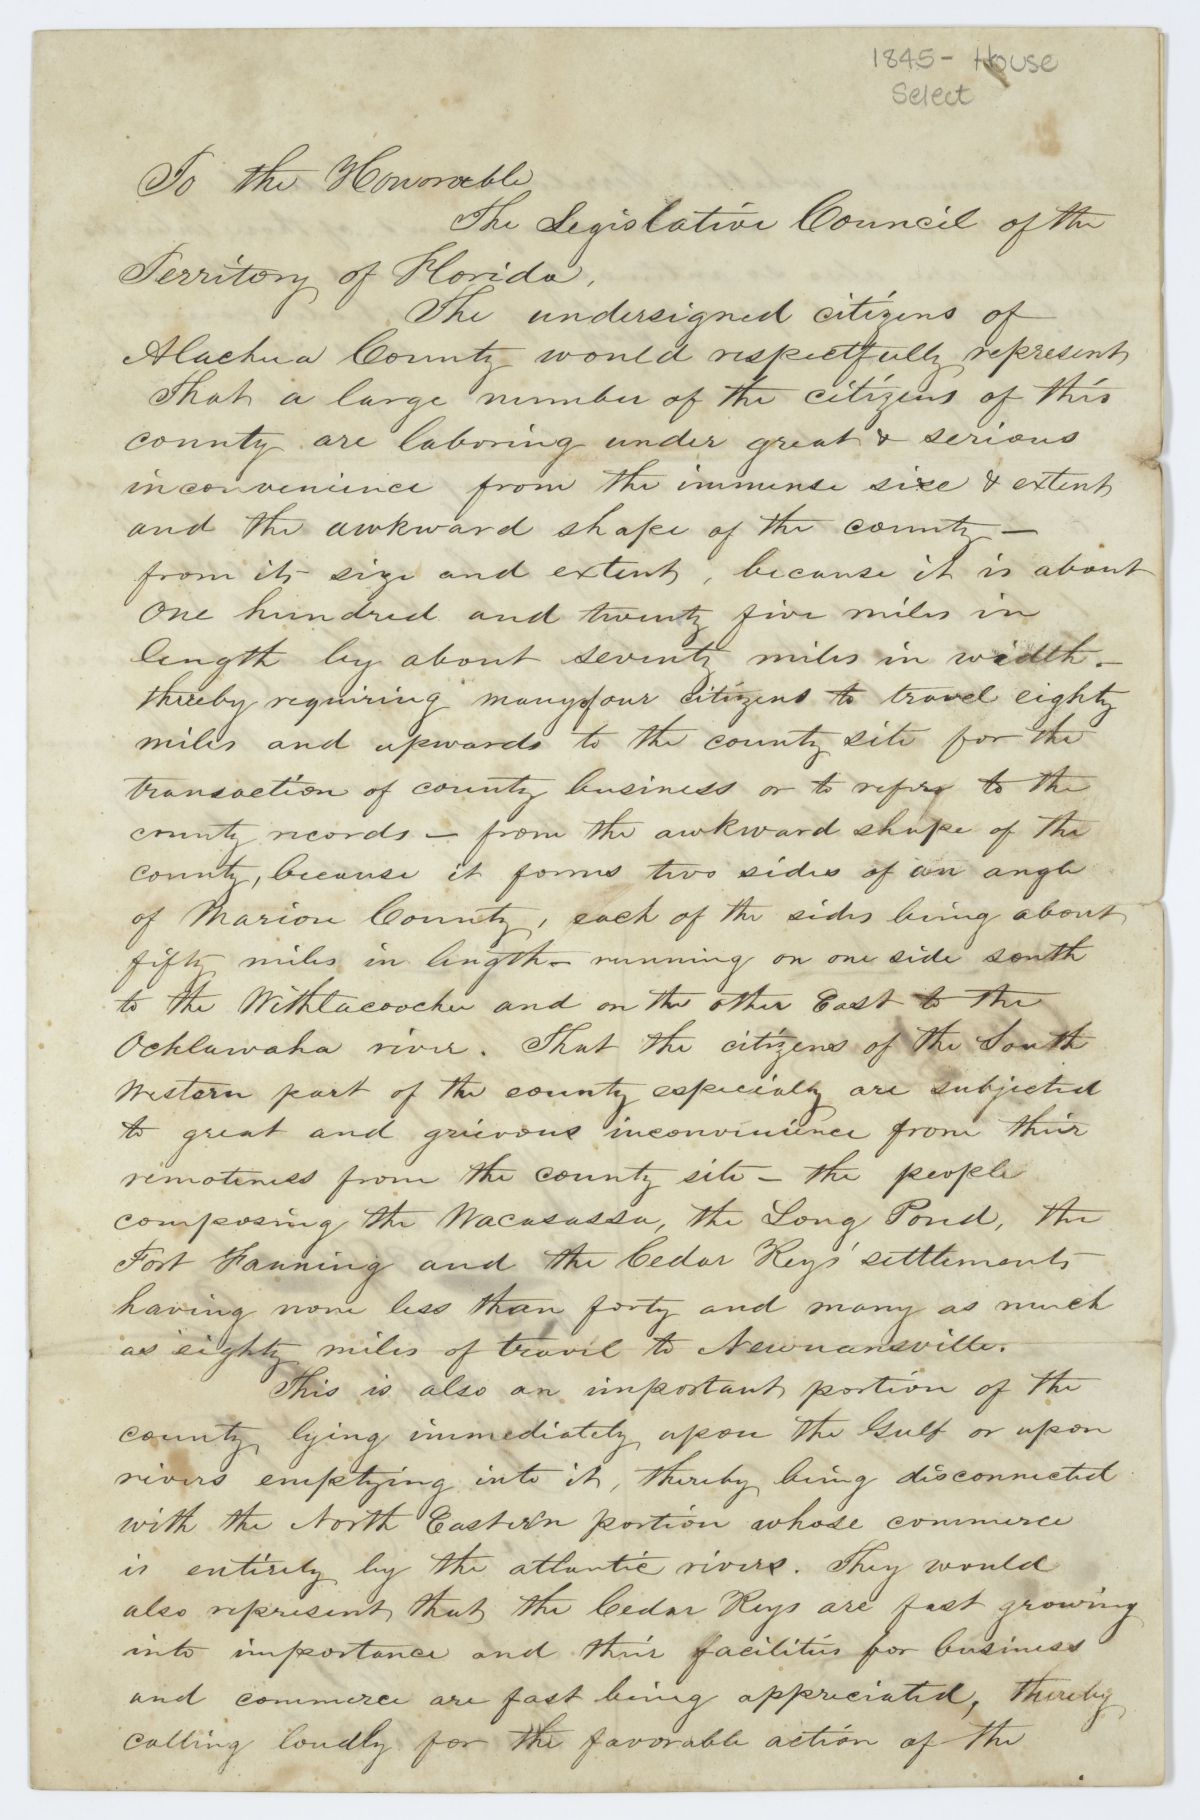 1845 - House
Select
To the Honorable
The Legislative Council of the
Territory of Florida,
The undersigned citizens of
Alachua County would respectfully represent
That a large number of the citizens of this
county are laboring under great & serious
inconvenience from the immense size & extent
and the awkward shape of the county -
from its size and extent, because it is about
One hundred and twenty five miles in
length by about seventy miles in width -
thereby requiring many of our citizens to travel eighty
miles and upwards to the county site for the
transaction of county business or to refer to the
county records - from the awkward shape of the
county, because it forms two sides of an angle
of Marion County, each of the sides being about
fifty miles in length - running on one side south
to the Withlacoochee and on the other East to the
Ocklawaha river. That the citizens of the South
Western part of the county especially are subjected
to great and grievous inconvenience from their
remoteness from the county site - the people
composing the Wacasassa, the Long Pond, the
Fort Fanning and the Cedar Keys' settlements
having none less than forty and many as much
as eighty miles of travel to Newnansville.
This is also an important portion of the
county lying immediately upon the Gulf or upon
rivers emptying into it, thereby being disconnected
with the North Eastern portion whose commerce
is entirely by the atlantic rivers. They would
also represent that the Cedar Keys are fast growing
into importance and their facilities for business
and commerce are fast being appreciated, thereby
calling loudly for the favorable action of the